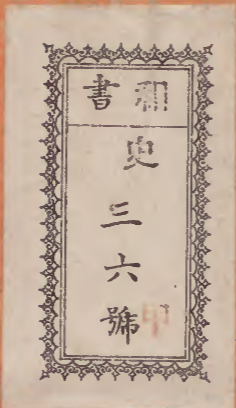 和書
史
三六號
甲